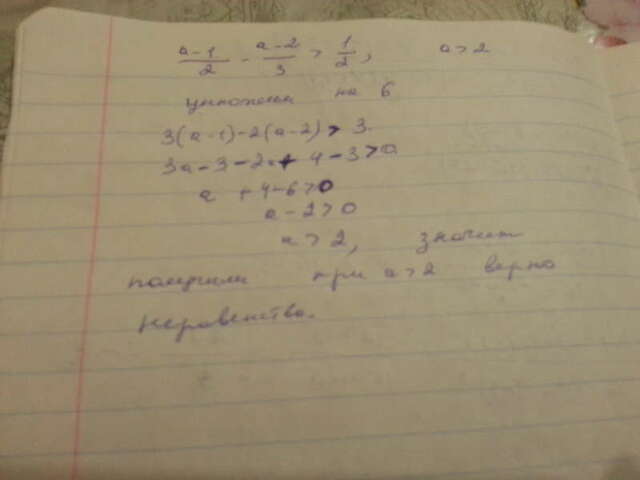 a-1/2 - a-2/3 > 1/2, a>2
умножим на 6
3(a-1)-2(a-2) > 3.
3a-3-2a+4-3>0
a +4-6>0
a-2>0
a>2, значит
получили при a>2 верно
неравенство.